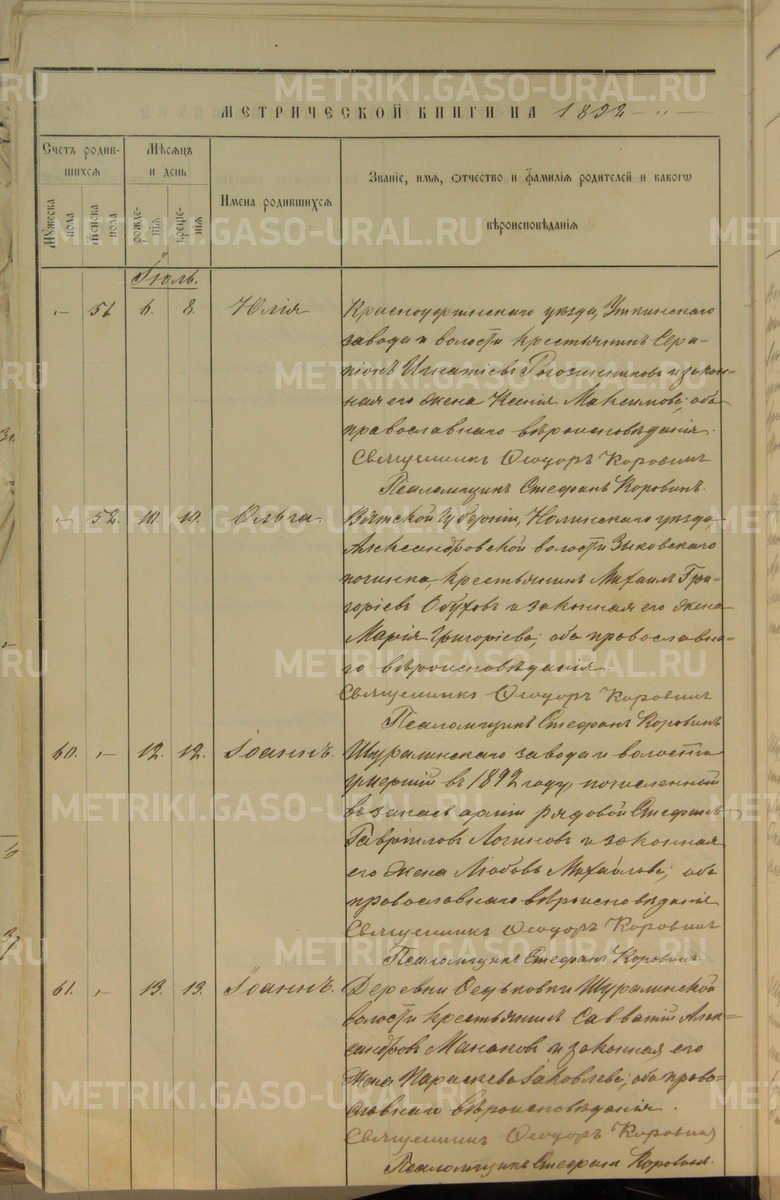 МЕТРИЧЕСКОЙ КНИГИ НА 1892
Счетъ родив-
шихся
Мѣсяцъ
и день
Имена родившихся
Званіе, имя, отчество и фамилія родителей и какого
вѣроисповѣданія
Мужеска пола
Женска пола
рожде-
нія
креще-
нія
Іюль.
,,- 51. 6. 8. Юлія
Красноуфимскаго уѣзда, Уткинскаго
завода и волости крестьянинъ Сера-
піонъ Игнатіевъ Рогозинниковъ и закон-
ная его жена Ксенія Максимова; оба
православнаго вѣроисповѣданія.
Священникъ Ѳеодоръ Коровинъ
Псаломщикъ Стефанъ Коровинъ.
,,- 52. 10. 10. Ольга.
Вятской Губерніи, Нолинскаго уѣзда
Александровской волости Зыковскаго
починка, крестьянинъ Михаилъ Гри-
горіевъ Обуховъ и законная его жена
Марія Григоріева; оба православна-
го вѣроисповѣданія.
Священникъ Ѳеодоръ Коровинъ
Псаломщикъ Стефанъ Коровинъ
60. ,,- 12. 12. Іоаннъ.
Шуралинскаго завода и волости
умершій въ 1892 году, 
въ запасъ арміи рядовой Стефанъ
Гавріиловъ Логиновъ и законная
его жена Любовь Михайлова; оба
православнаго вѣроисповѣданія
Священникъ Ѳеодоръ Коровинъ
Псаломщикъ Стефанъ Коровинъ.
61. ,,- 13. 13. Іоаннъ.
Деревни Ѳедьковки Шуралинской
волости крестьянинъ Савватій Алек-
сандровъ Манаковъ и законная его
жена Параскева Іаковлева; оба право-
славнаго вѣроисповѣданія.
Священникъ Ѳеодоръ Коровинъ
Псаломщикъ Стефанъ Коровинъ.
METRIKI.GASO-URAL.RU